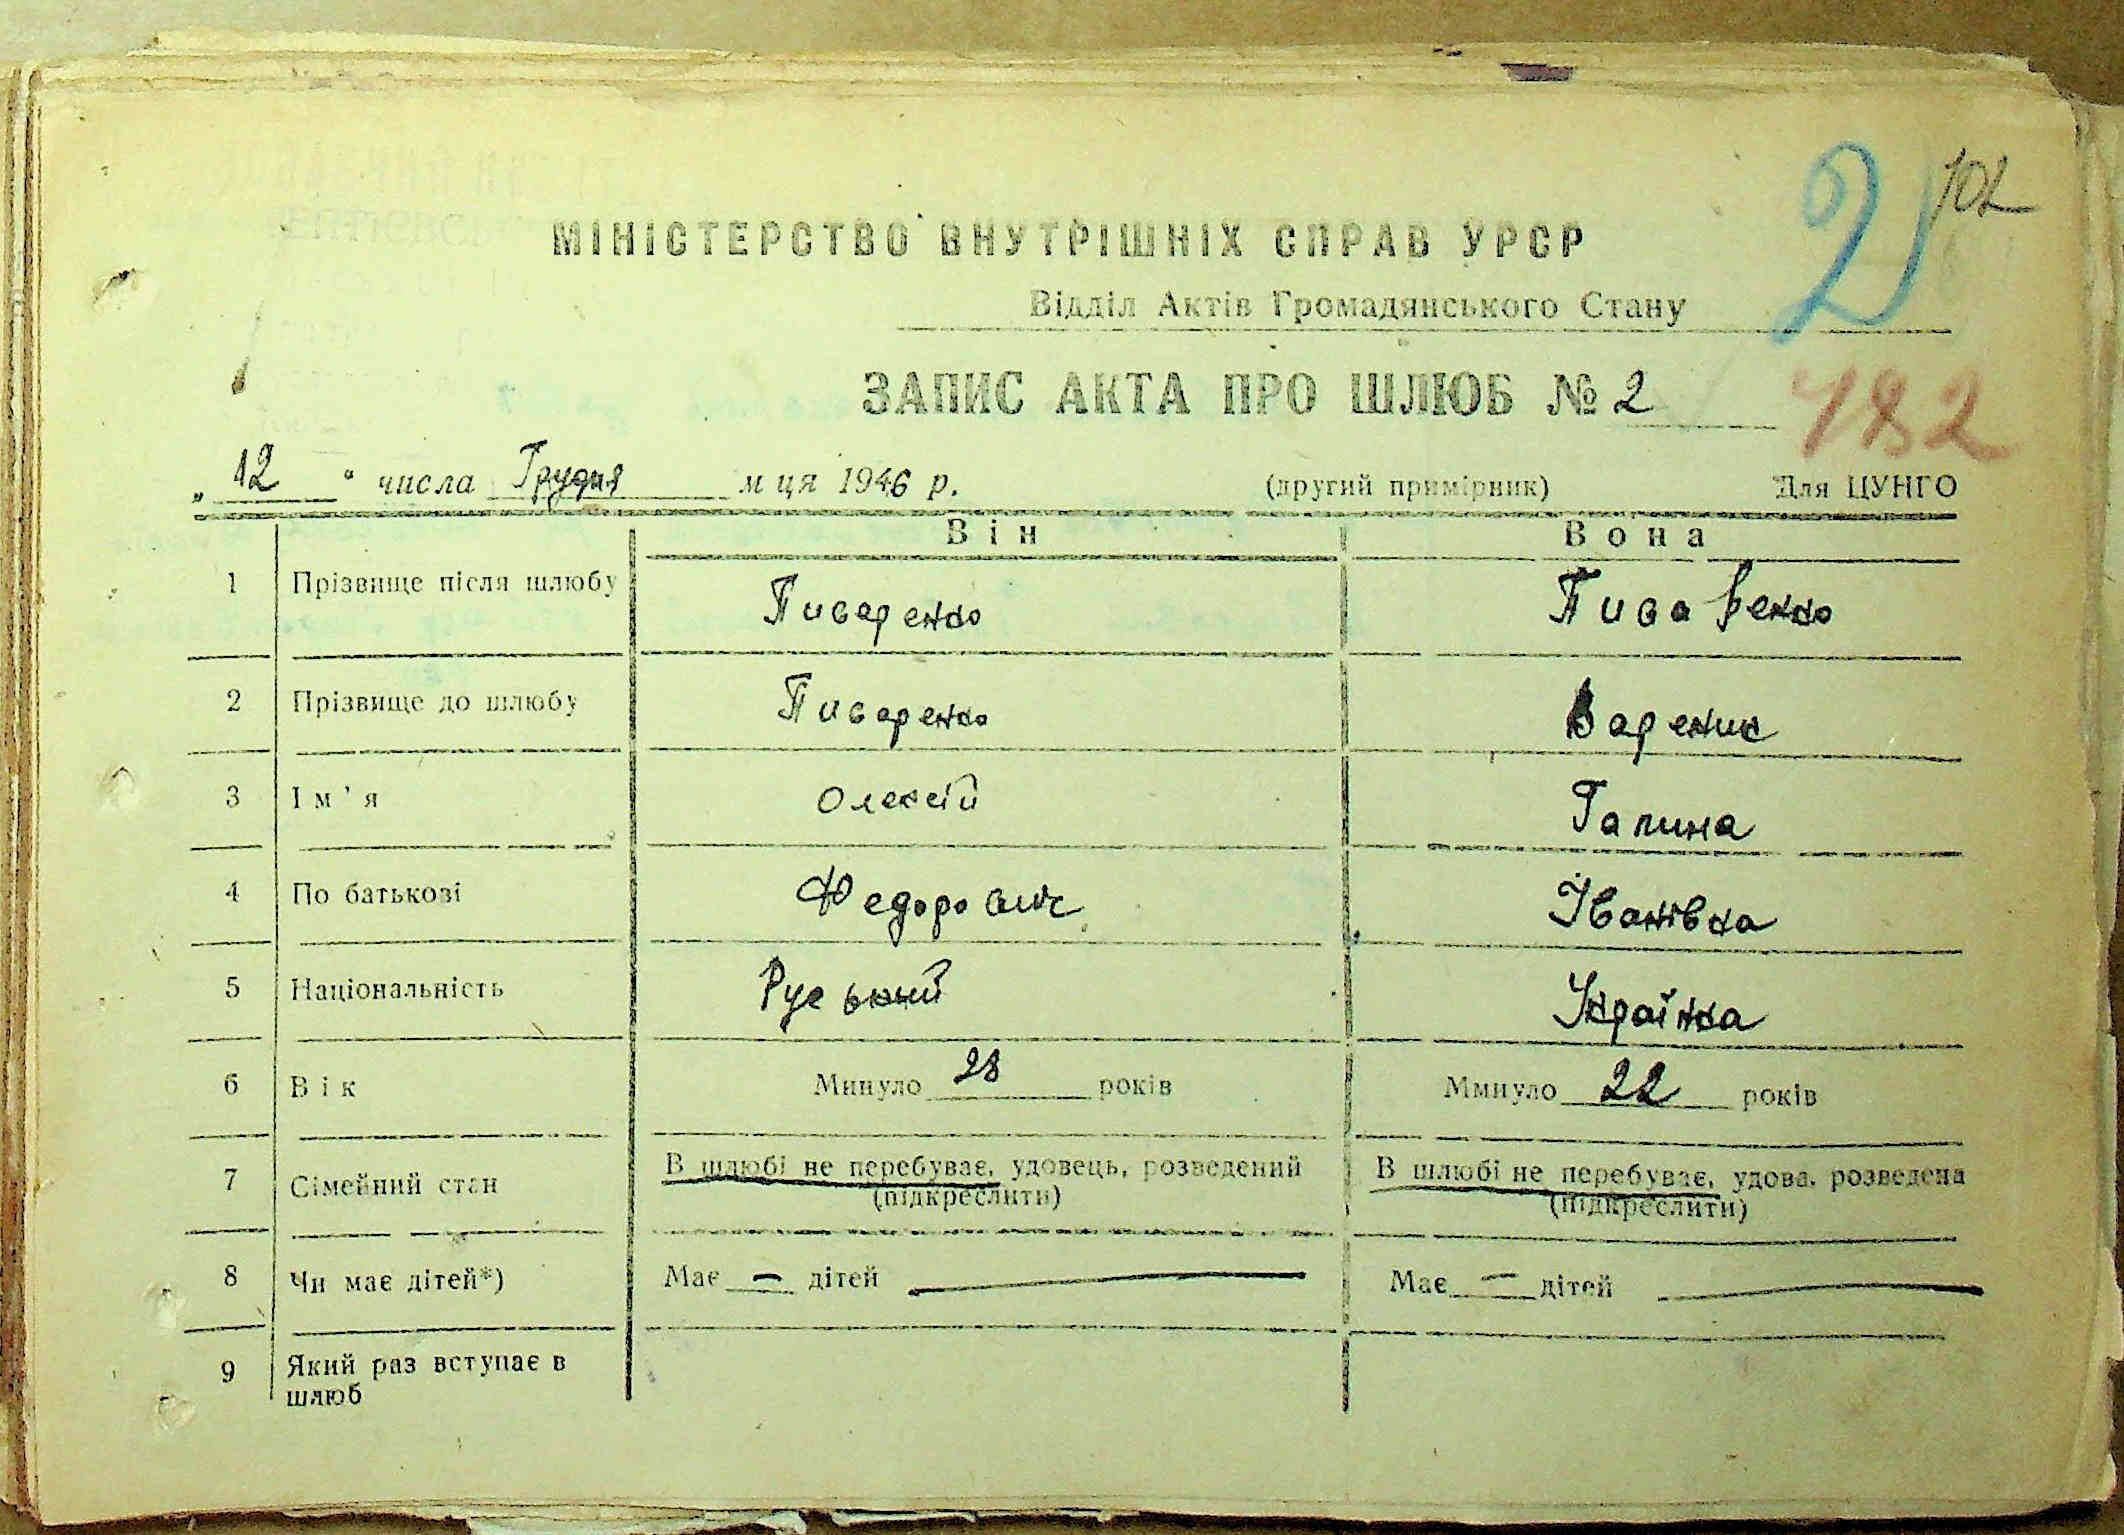 2 102
МІНІСТЕРСТВО ВНУТРІШНІХ СПРАВ УРСР
Відділ Актів Громадянського Стану
ЗАПИС АКТА ПРО ШЛЮБ № 2
782
„ 12 " числа Грудня м ця 1946 р. (другий примірник) Для ЦУНГО
Він Вона
1 Прізвище після шлюбу Писаренко Писаренко
2 Прізвище до шлюбу Писаренко Вареник
3 Ім'я Олексій Галина
4 По батькові Федорович Іванівка
5 Національність Руський Українка
6 Вік Минуло 28 років Ммнуло 22 років
7 Сімейний стан В шлюбі не перебуває, удовець, розведений В шлюбі не перебуває, удова, розведена
(підкреслити) (підкреслити)
8 Чи має дітей*) Має — дітей — Має — дітей —
9 Який раз вступає в
шлюб